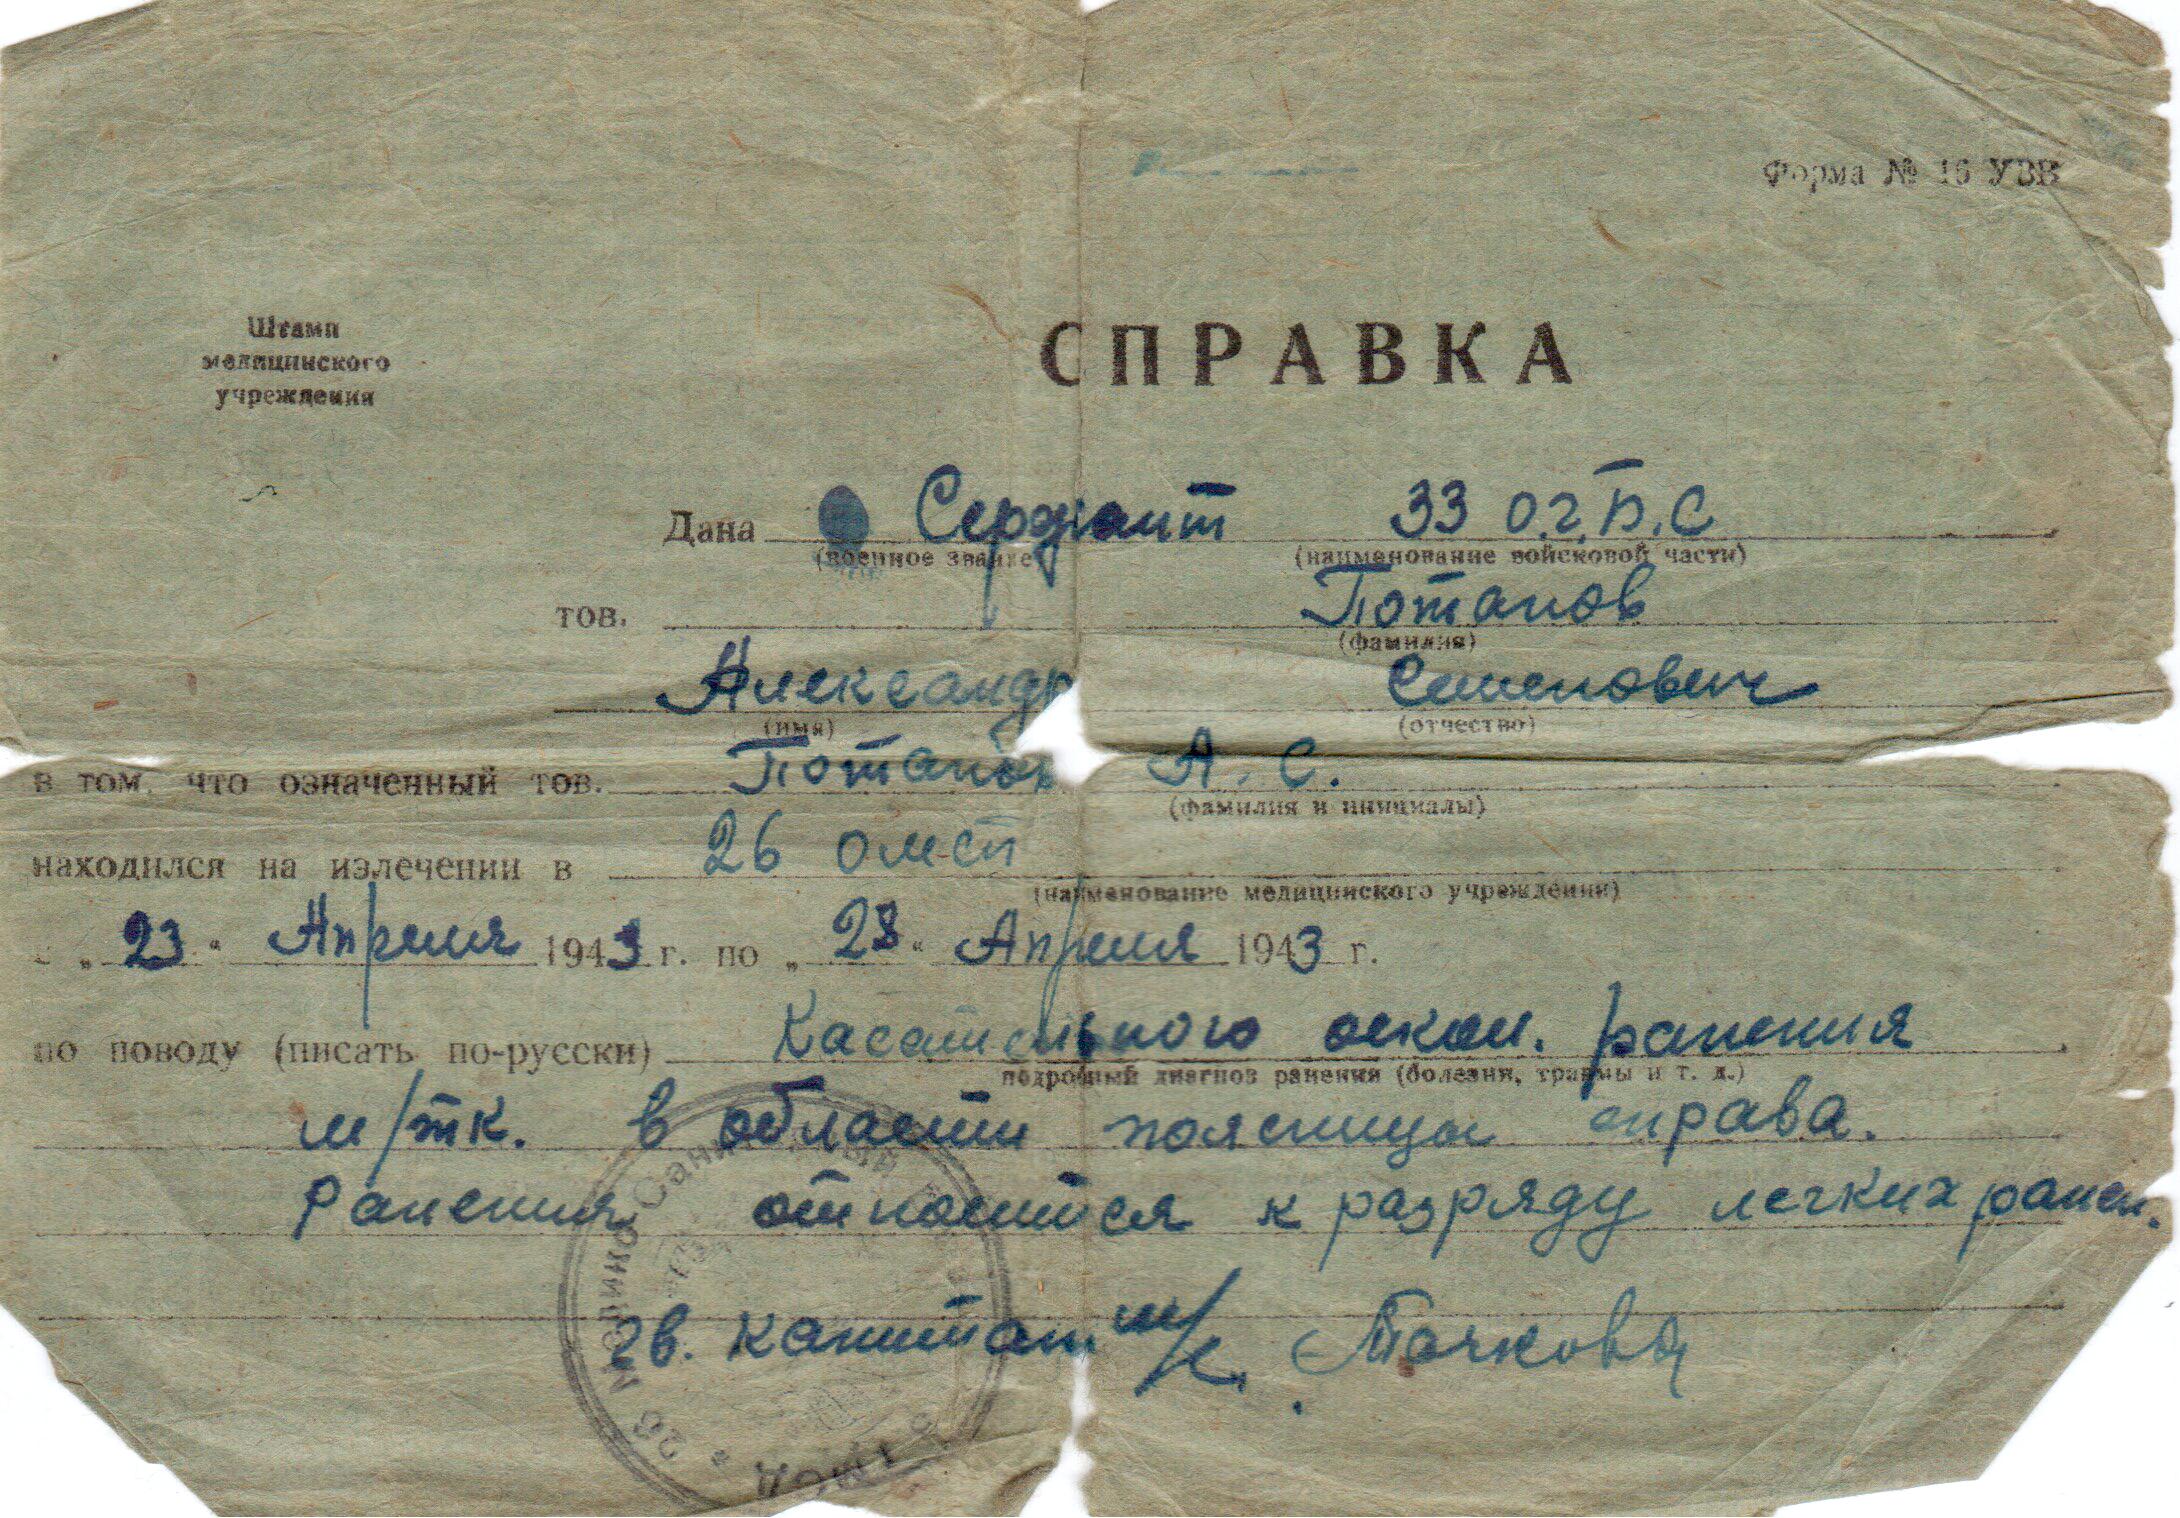 Форма № 16 УВВ
Штамп
медицинского
учреждения
СПРАВКА
Дана Сержант 33 о.г.п.с
(военное звание (наименование войсковой части)
тов. Потапов
(фамилия)
Александр Семенович
(имя) (отчество)
в том, что означенный тов. Потапов А. С.
(фамилия и инициалы)
находился на излечении в 26 омсп
(наименование медицинского учреждения)
с „23“ Апреля 1943 г. по „28“ Апреля 1943 г.
по поводу (писать по-русски) Касательного оскол. ранения
подробный диагноз ранения (болезни, травмы и т. д.)
м/тк. в области поясницы справа.
Ранения относится к разряду легких ранен.
гв. капитан м/с. Тачкова
* 26 Медико Санитарный